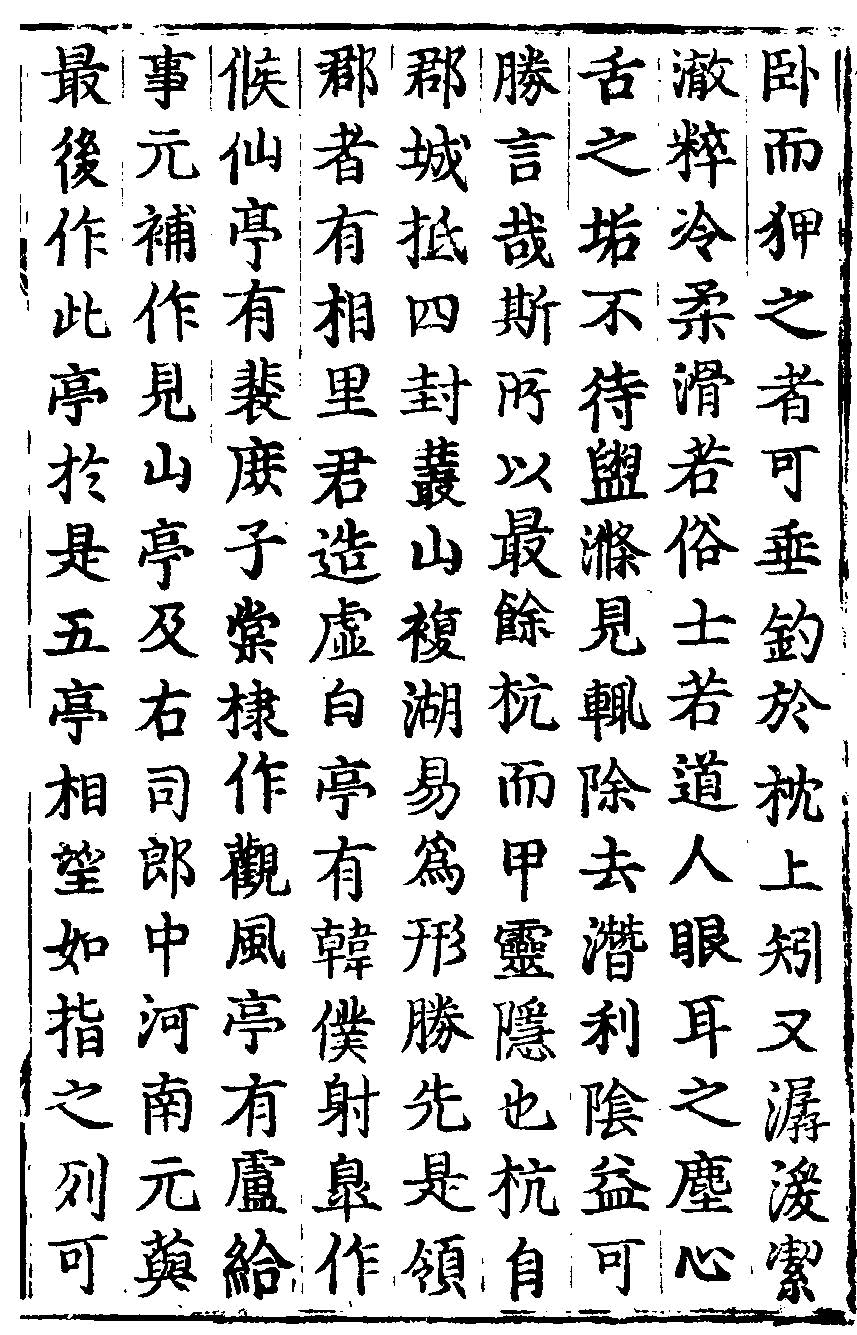 卧而狎之者可垂釣於枕上矧又潺湲潔
澈粹冷柔滑若俗士若道人眼耳之塵心
舌之垢不待盥滌見輒除去潛利隂益可
勝言哉斯所以最餘杭而甲靈隱也杭自
郡城抵四封叢山複湖易爲形勝先是領
郡者有相里君造虛白亭有韓僕射臯作
候仙亭有裴庶子棠棣作觀風亭有盧給
事元補作見山亭及右司郎中河南元藇
最後作此亭於是五亭相望如指之列可